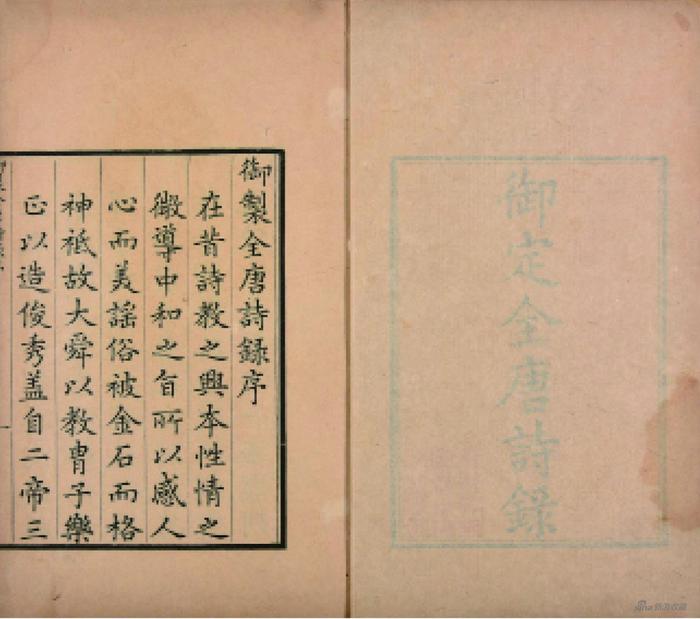 御定全唐詩錄
御製全唐詩錄序
在昔詩教之興本性情之
微導中和之旨所以感人
心而美謠俗被金石而格
神祇故大舜以教胄子樂
正以造俊秀蓋自二帝三